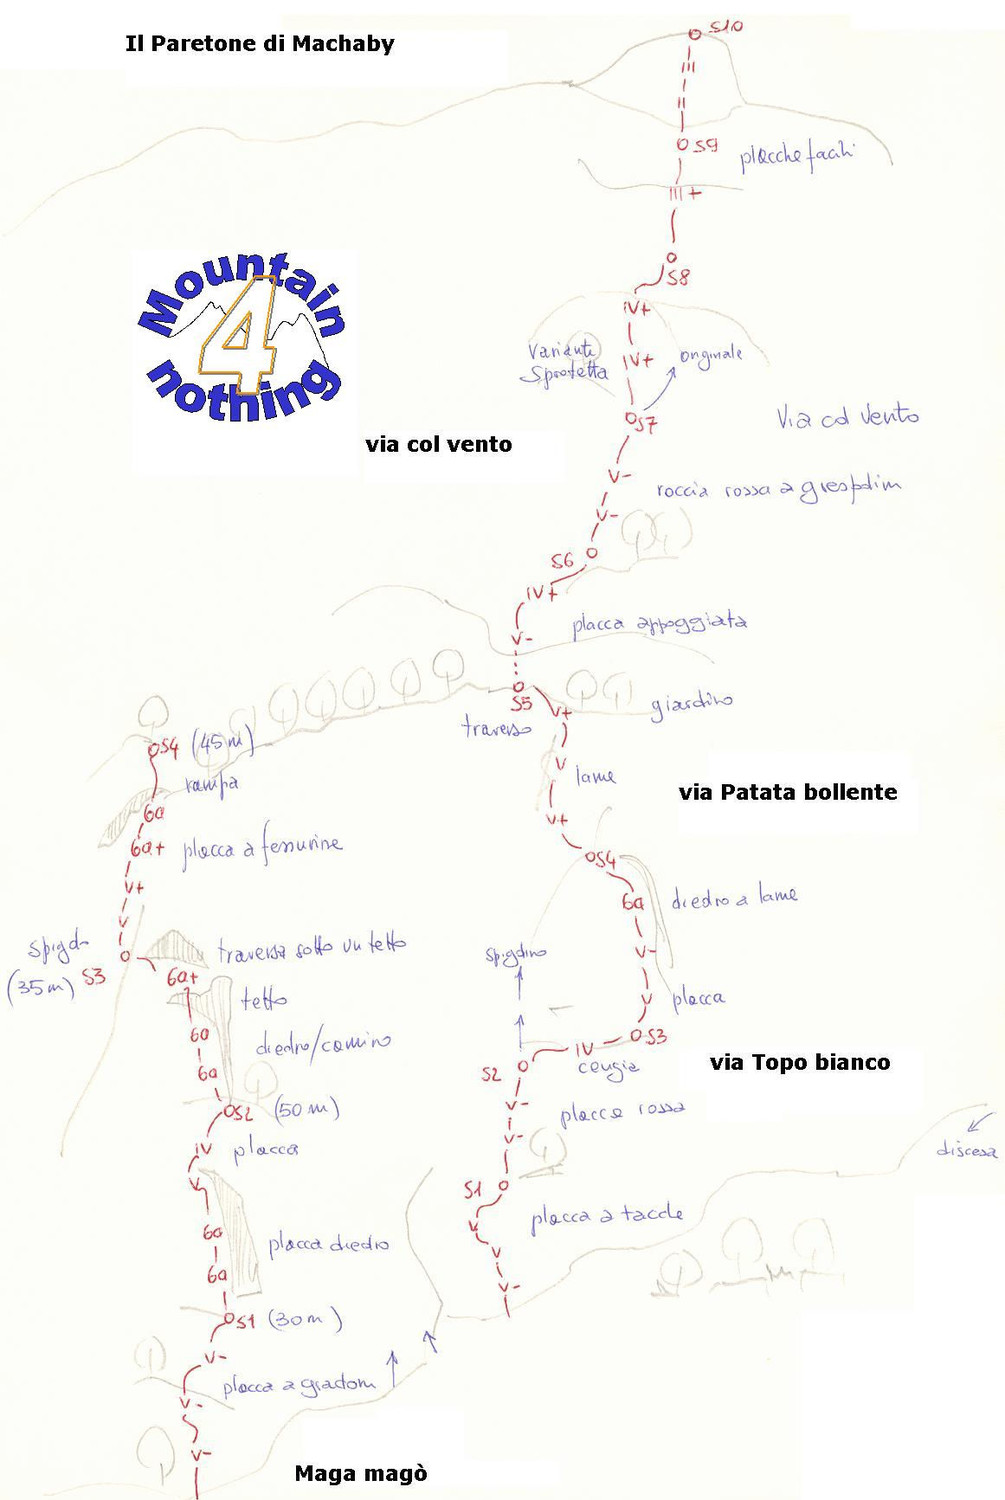 Il Paretone di Machaby
S10
III
II
S9
placche facili
III+
S8
Mountain
4
nothing
IV+
Variante
Sprotetta
IV+
originale
S7
Via col vento
via col vento
V-
roccia rossa a
V-
S6
IV+
placca appoggiata
V-
S5
giardino
traverso
V+
S4 (45m)
rampa
V
lame
via Patata bollente
6a
V+
6a+
placca a fessurine
S4
V+
6a
diedro a lame
V
spigolo
(35m) S3
traversa sotto un tetto
V-
spigolino
6a+
tetto
V
placca
6a
diedro/camino
S3
IV
cengia
via Topo bianco
6a
S2
S2 (50m)
V-
placca rossa
V-
IV
placca
discesa
V
S1
placca a tacche
V
6a
placca diedro
V
6a
V-
S1 (30m)
V-
placca a gradoni
V-
V-
Maga magò